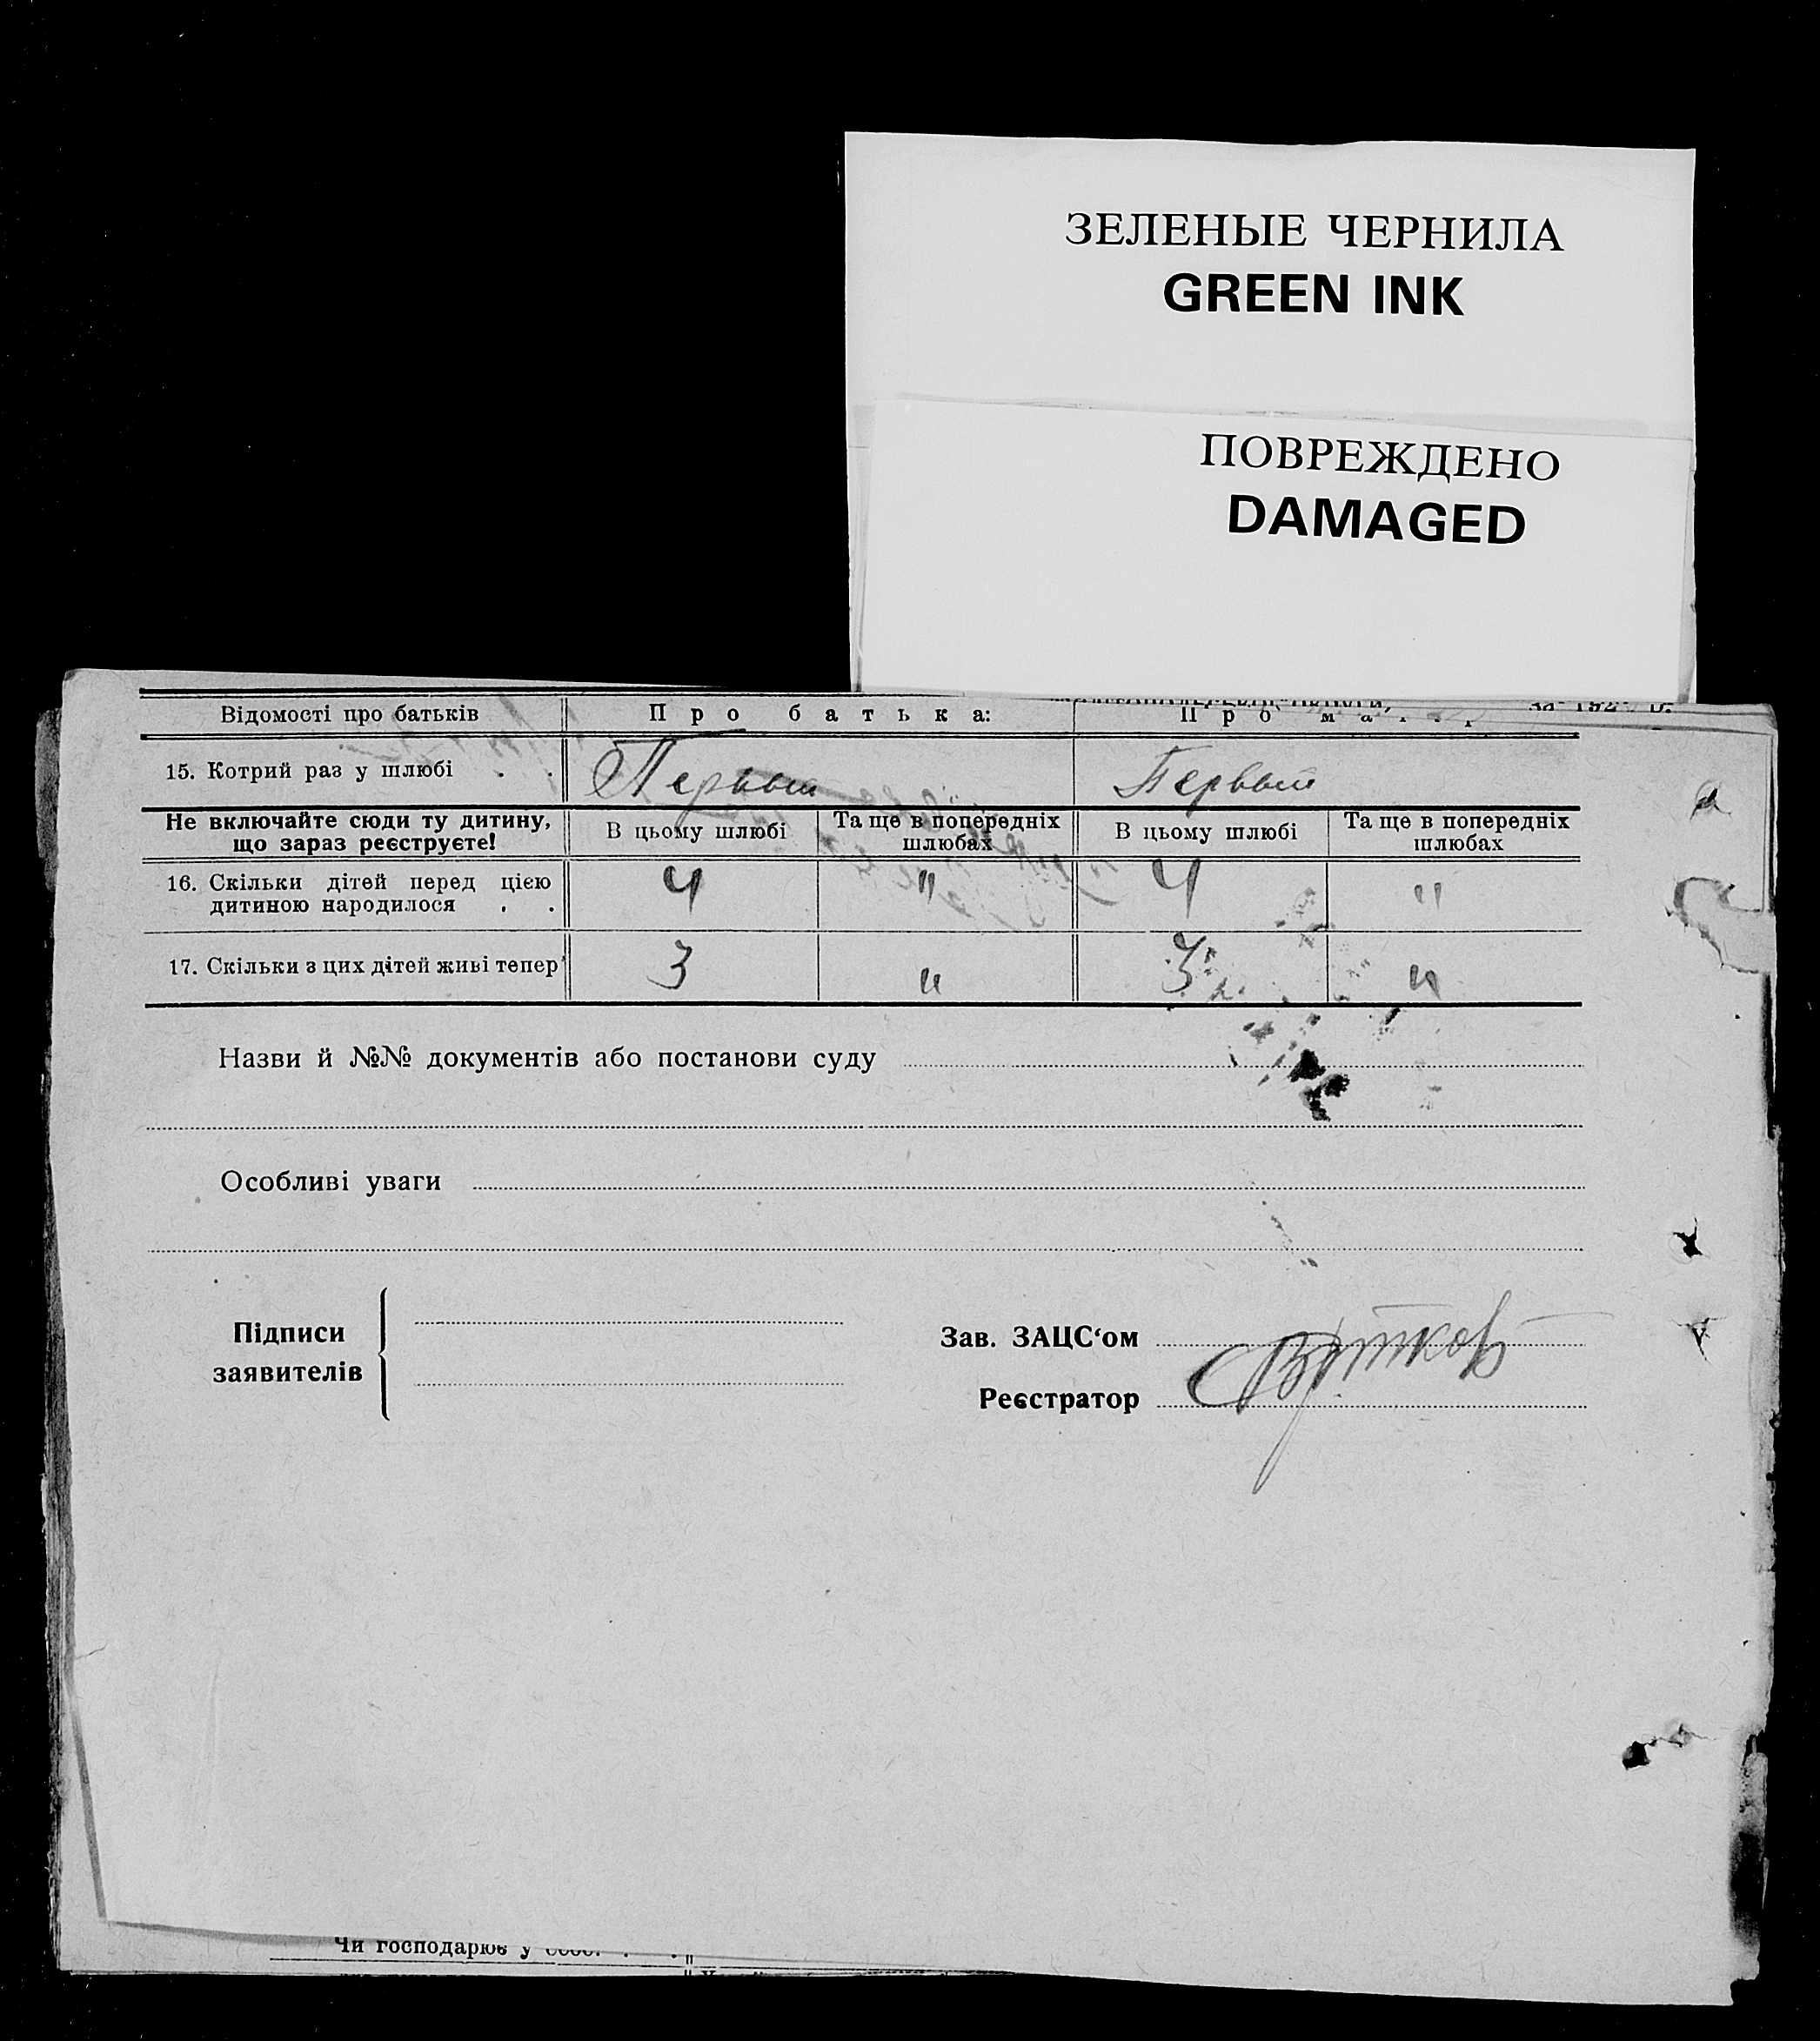 ЗЕЛЕНЫЕ ЧЕРНИЛА
GREEN INK
ПОВРЕЖДЕНО
DAMAGED
за 192 р.
Відомості про батьків Про батька: Про
15. Котрий раз у шлюбі . . Первый Первый
Не включайте сюди ту дитину, що зараз реєструєте! В цьому шлюбі Та ще в попередніх шлюбах В цьому шлюбі Та ще в попередніх шлюбах
16. Скільки дітей перед цією дитиною народилося . . 4 " 4 "
17. Скільки з цих дітей живі тепер 3 " 3 "
Назви й №№ документів або постанови суду
Особливі уваги
Підписи заявителів
Зав. ЗАЦС‘ом
Реєстратор
Чи господарює у